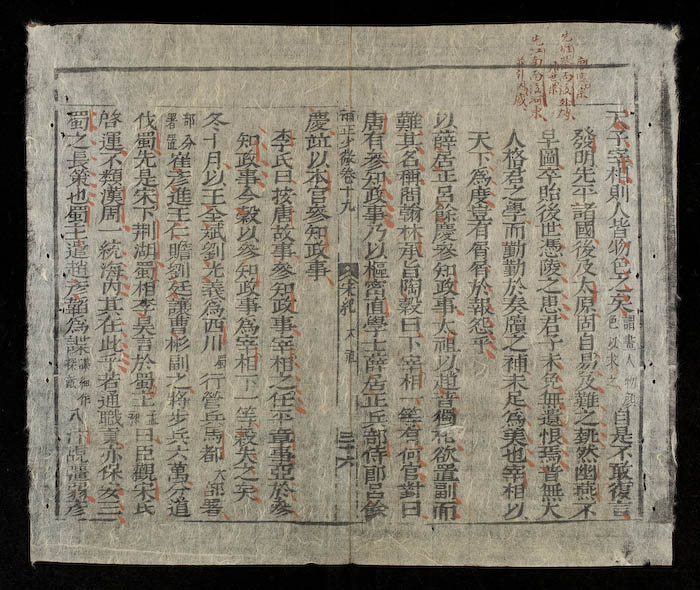 天子宰相則人皆物色之矣謂畫人物顏色以求之自是不敢復言
發明先平諸國後及太原固自易及難之〇然幽燕不
早圖卒貽後世憑陵之患君子未免無遺恨焉普無大
人格君之學而勤勤於奏牘之補未足爲美也宰相以
天下爲度豈有屑屑於報怨乎
以薛居正呂餘慶參知政事太祖以趙普獨相欲置副而
難其名稱問翰林承旨陶穀曰下宰相一等有何官對曰
唐有參知政事乃以樞密直學士薛居正兵部侍郎呂餘
慶並以本官參知政事
補正少微卷十九
宋紀
太祖
三十六
李氏曰按唐故事參知政事宰相之任平章事亞於參
知政事今穀以參知政事爲宰相下一等穀失之矣
冬十月以王全斌劉光義爲西川行營兵馬都部署
部分署置崔彥進王仁贍劉廷讓曹彬副之將步兵六萬分道
伐蜀先是宋下荆湖蜀相李昊言於蜀主曰臣觀宋氏
啓運不類漢周一統海內其在此乎若通職貢亦保安三
蜀之長策也蜀主遣趙彥韜爲諜